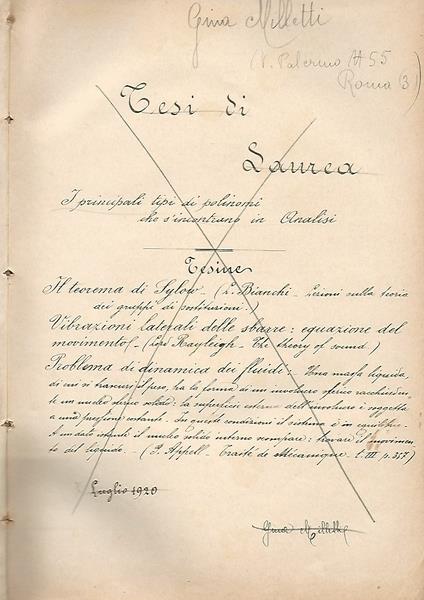 Gina Milletti
(V. Palermo # 55
Roma (3)
Tesi di
Laurea
I principali tipi di polinomi
che s'incontrano in Analisi
Tesine
Il teorema di Sylow. (L. Bianchi - Lezioni sulla teoria
dei gruppi di sostituzioni.)
Vibrazioni laterali delle sbarre: equazione del
movimento. (Lord Rayleigh - The theory of sound.)
Problema di dinamica dei fluidi: - Una massa liquida,
di cui si trascuri il peso, ha la forma di un involucro sferico racchiuden-
te un nucleo sferico solido: la superficie esterna dell'involucro è soggetta
a una pressione costante. In queste condizioni il sistema è in equilibrio.
A un dato istante il nucleo solido interno scompare: trovare il movimen-
to del liquido. - (P. Appell - Traité de Mécanique. t. III p. 357.)
Luglio 1920
Gina Milletti